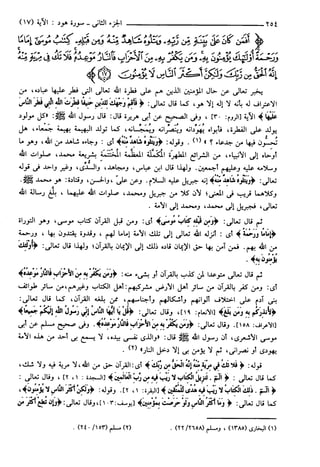 ٢٥٤ الجزء الثاني - سورة هود : الآية (١٧)
﴿ أَفَمَن كَانَ عَلَىٰ بَيِّنَةٍ مِّن رَّبِّهِۦ وَيَتْلُوهُ شَاهِدٌ مِّنْهُ وَمِن قَبْلِهِۦ كِتَٰبُ مُوسَىٰٓ إِمَامًا
وَرَحْمَةً أُو۟لَٰٓئِكَ يُؤْمِنُونَ بِهِۦ وَمَن يَكْفُرْ بِهِۦ مِنَ ٱلْأَحْزَابِ فَٱلنَّارُ مَوْعِدُهُۥ فَلَا تَكُ فِى مِرْيَةٍ مِّنْهُ
إِنَّهُ ٱلْحَقُّ مِن رَّبِّكَ وَلَٰكِنَّ أَكْثَرَ ٱلنَّاسِ لَا يُؤْمِنُونَ ١٧ ﴾
يخبر تعالى عن حال المؤمنين الذين هم على فطرة الله تعالى التي فطر عليها عباده، من
الاعتراف له بأنه لا إله إلا هو، كما قال تعالى: ﴿فَأَقِمْ وَجْهَكَ لِلدِّينِ حَنِيفًا فِطْرَتَ اللَّهِ الَّتِي فَطَرَ النَّاسَ
عَلَيْهَا﴾ الآية [الروم: ٣٠]، وفي الصحيح عن أبي هريرة قال: قال رسول الله ﷺ: «كل مولود
يولد على الفطرة، فأبواه يُهَوِّدانه ويُنَصِّرانه ويُمَجِّسانه، كما تولد البهيمة بهيمة جَمْعاء، هل
تُحسون فيها من جدعاء» (١). وقوله: ﴿وَيَتْلُوهُ شَاهِدٌ مِنْهُ﴾ أي: وجاءه شاهد من الله، وهو ما
أوحاه إلى الأنبياء، من الشرائع المطهرة المُكَمَّلة المعظَّمة المُخْتَتَمَة بشريعة محمد، صلوات الله
وسلامه عليه وعليهم أجمعين. ولهذا قال ابن عباس، ومجاهد، والسُّدِّي، وغير واحد في قوله
تعالى: ﴿وَيَتْلُوهُ شَاهِدٌ مِنْهُ﴾ إنه جبريل عليه السلام. وعن عليّ، والحسن، وقتادة: هو محمد ﷺ.
وكلاهما قريب في المعنى؛ لأن كلا من جبريل ومحمد، صلوات الله عليهما، بلّغ رسالة الله
تعالى، فجبريل إلى محمد، ومحمد إلى الأمة.
ثم قال تعالى: ﴿وَمِنْ قَبْلِهِ كِتَابُ مُوسَى﴾ أي: ومن قبل القرآن كتاب موسى، وهو التوراة
﴿إِمَامًا وَرَحْمَةً﴾ أي: أنزله الله تعالى إلى تلك الأمة إماما لهم، وقدوة يقتدون بها، ورحمة
من الله بهم. فمن آمن بها حق الإيمان قاده ذلك إلى الإيمان بالقرآن؛ ولهذا قال تعالى: ﴿أُولَئِكَ
يُؤْمِنُونَ بِهِ﴾.
ثم قال تعالى متوعدا لمن كذب بالقرآن أو بشيء منه: ﴿وَمَنْ يَكْفُرْ بِهِ مِنَ الأَحْزَابِ فَالنَّارُ مَوْعِدُهُ﴾
أي: ومن كفر بالقرآن من سائر أهل الأرض مشركيهم: أهل الكتاب وغيرهم، من سائر طوائف
بني آدم على اختلاف ألوانهم وأشكالهم وأجناسهم، ممن بلغه القرآن، كما قال تعالى:
﴿لأُنْذِرَكُمْ بِهِ وَمَنْ بَلَغَ﴾ [الأنعام: ١٩]، وقال تعالى: ﴿قُلْ يَا أَيُّهَا النَّاسُ إِنِّي رَسُولُ اللَّهِ إِلَيْكُمْ جَمِيعًا﴾
[الأعراف: ١٥٨]. وقال تعالى: ﴿وَمَنْ يَكْفُرْ بِهِ مِنَ الأَحْزَابِ فَالنَّارُ مَوْعِدُهُ﴾. وفي صحيح مسلم عن أبي
موسى الأشعري، أن رسول الله ﷺ قال: «والذي نفسي بيده، لا يسمع بي أحد من هذه الأمة
يهودي أو نصراني، ثم لا يؤمن بي إلا دخل النار» (٢).
قوله: ﴿فَلا تَكُ فِي مِرْيَةٍ مِنْهُ إِنَّهُ الْحَقُّ مِنْ رَبِّكَ﴾ أي: القرآن حق من الله، لا مرية فيه ولا شك،
كما قال تعالى: ﴿الم. تَنْزِيلُ الْكِتَابِ لا رَيْبَ فِيهِ مِنْ رَبِّ الْعَالَمِينَ﴾ [السجدة: ١، ٢]، وقال تعالى:
﴿الم. ذَلِكَ الْكِتَابُ لا رَيْبَ فِيهِ هُدًى لِلْمُتَّقِينَ﴾ [البقرة: ١، ٢]. وقوله: ﴿وَلَكِنَّ أَكْثَرَ النَّاسِ لا يُؤْمِنُونَ﴾،
كما قال تعالى: ﴿وَمَا أَكْثَرُ النَّاسِ وَلَوْ حَرَصْتَ بِمُؤْمِنِينَ﴾ [يوسف: ١٠٣]، وقال تعالى: ﴿وَإِنْ تُطِعْ أَكْثَرَ مَنْ
(١) البخاري (١٣٨٥)، ومسلم (٢٢/٢٦٥٨). (٢) مسلم (٢٤٠/١٥٣).